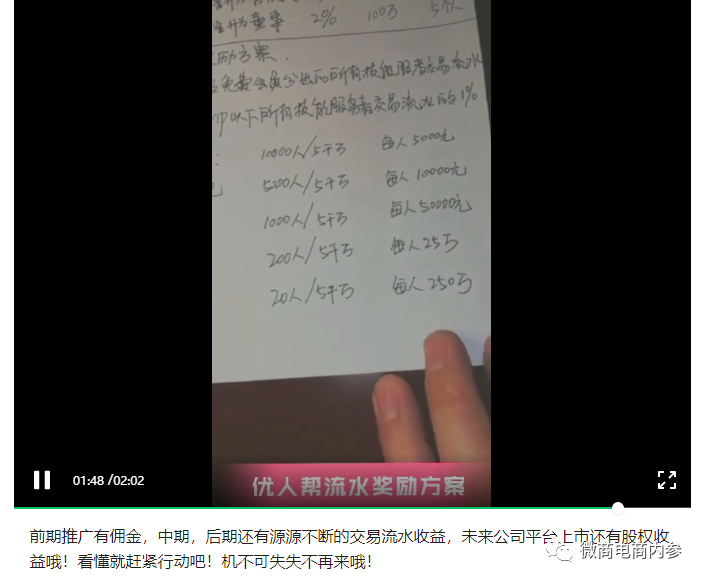 升为董事. 2% 100万 5个人
励方案.
免费会员分出的所有技能服务交易流水
以下所有技能服务者交易流水的1%
10000人/5千万 每人5000元
5000人/5千万 每人10000元
1000人/5千万 每人50000元
200人/5千万 每人25万
20人/5千万 每人250万
优人帮流水奖励方案
01:48 /02:02
前期推广有佣金，中期，后期还有源源不断的交易流水收益，未来公司平台上市还有股权收
益哦！看懂就赶紧行动吧！机不可失失不再来哦！
微商电商内参